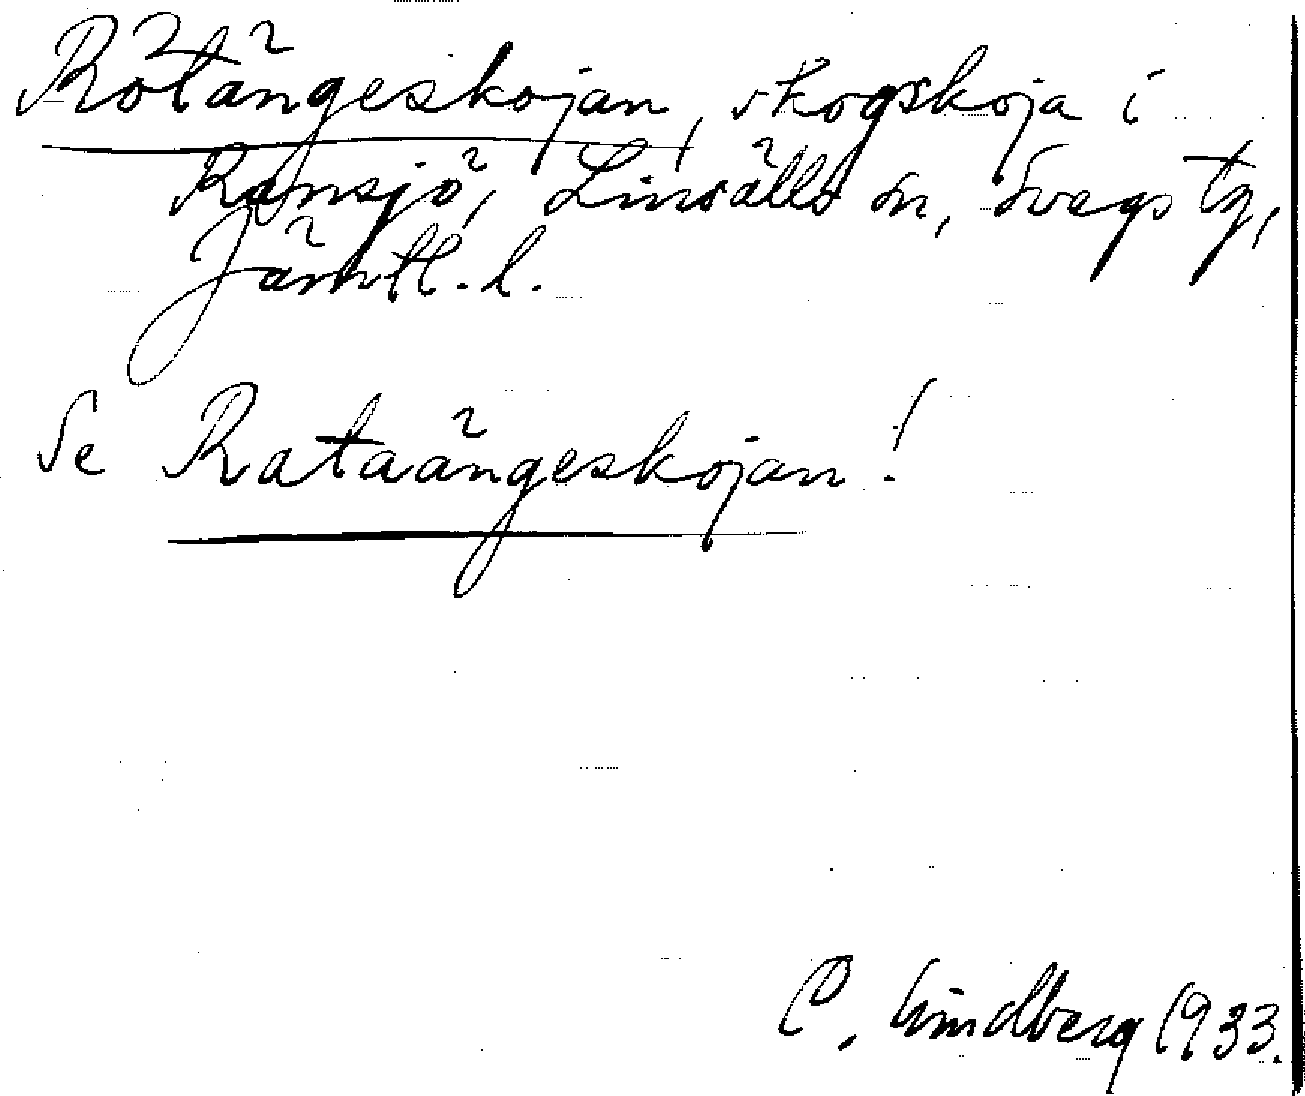 Rötängeskojan, skogskoja i
Ransjö, Linsälls sn, Svegs tg,
Jämtl. l.
Se Rataängeskojan!
C. Lindberg 1933.